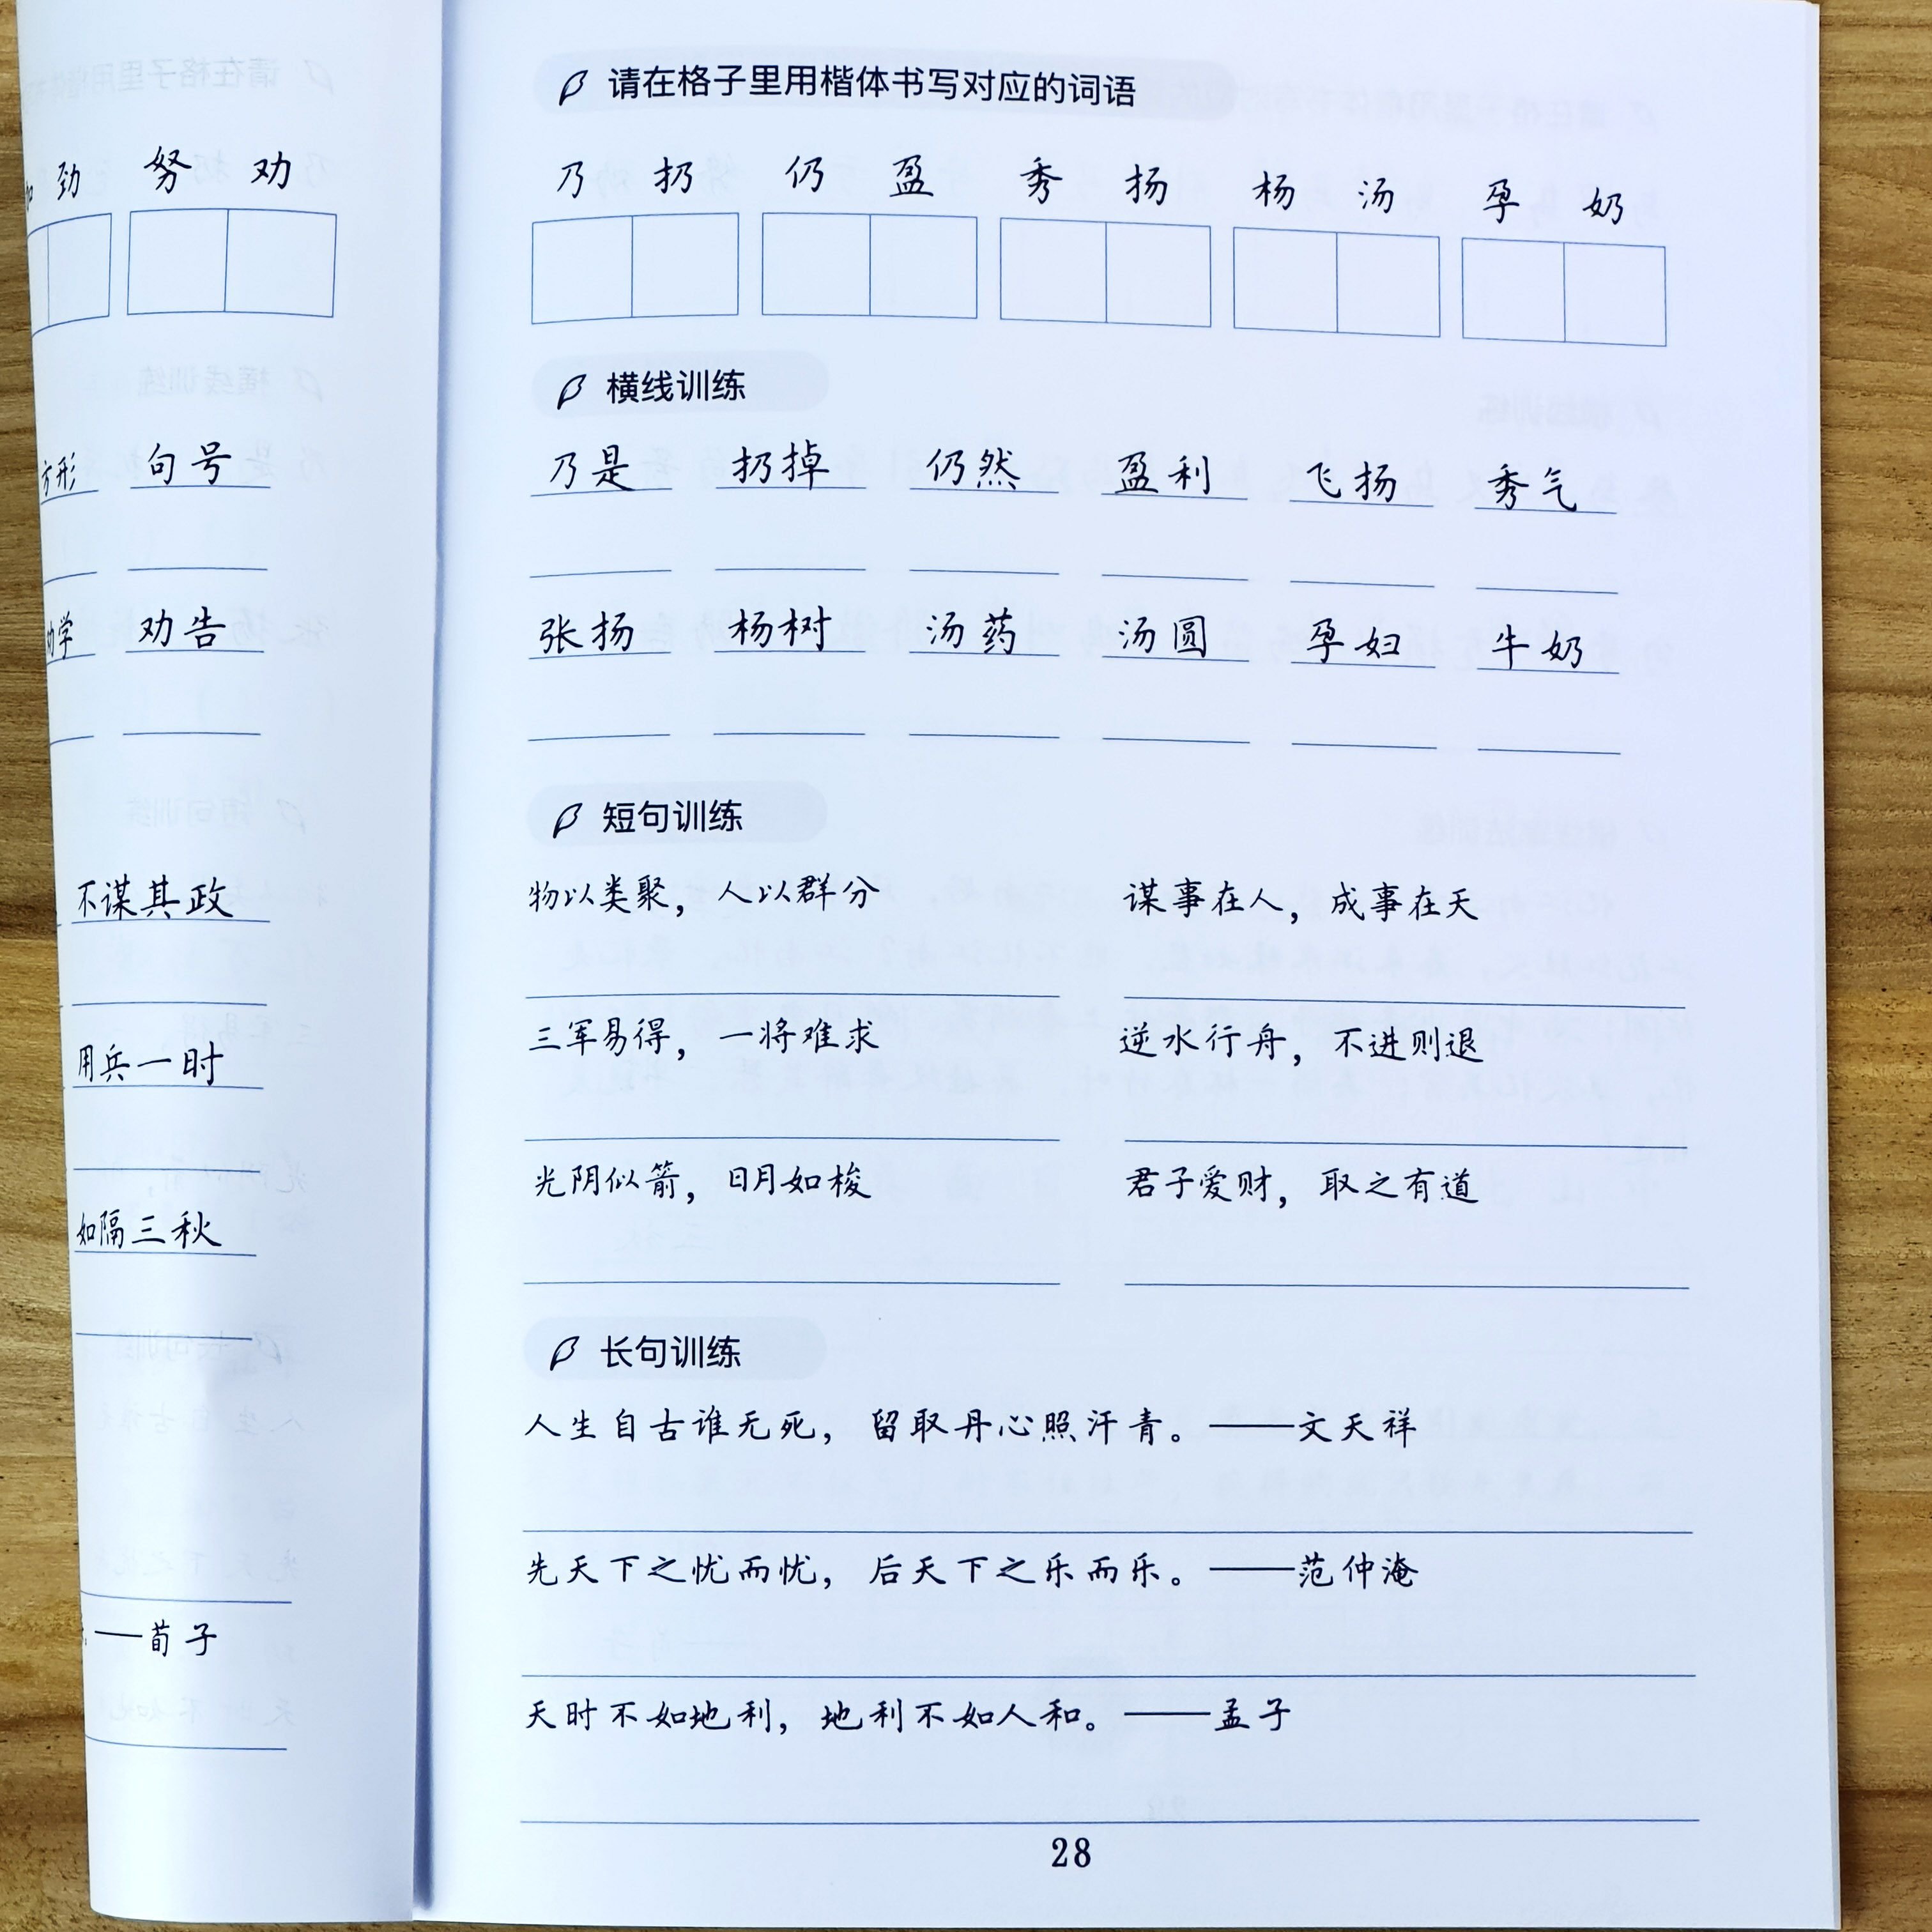 劲 努 劝
方形 句号
劝告
不谋其政
用兵一时
如隔三秋
——荀子
请在格子里用楷体书写对应的词语
乃 扔 仍 盈 秀 扬 杨 汤 孕 奶
横线训练
乃是 扔掉 仍然 盈利 飞扬 秀气
张扬 杨树 汤药 汤圆 孕妇 牛奶
短句训练
物以类聚，人以群分 谋事在人，成事在天
三军易得，一将难求 逆水行舟，不进则退
光阴似箭，日月如梭 君子爱财，取之有道
长句训练
人生自古谁无死，留取丹心照汗青。——文天祥
先天下之忧而忧，后天下之乐而乐。——范仲淹
天时不如地利，地利不如人和。——孟子
28